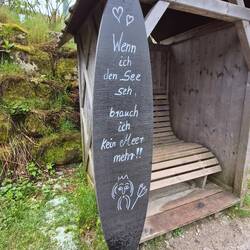 Wenn
ich
den See
seh,
brauch
ich
kein Meer
mehr!!